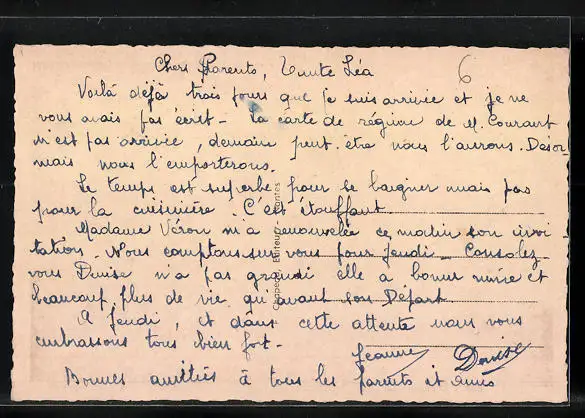 Chers Parents, Tante Léa
6
Voilà déjà trois jours que je suis arrivée et je ne
vous avais pas écrit - La carte de région de M. Courant
n'est pas arrivée, demain peut être nous l'aurons. Desor-
mais nous l'emporterons.
Le temps est superbe pour se baigner mais pas
pour la cuisinière. C'est étouffant
Madame Véron m'a renouvelée ce matin son invi-
tation. Nous comptons sur vous pour Jeudi - Consolez
vous Denise n'a pas grandi elle a bonne mine et
beaucoup plus de vie qu'avant son Départ
A Jeudi, et dans cette attente nous vous
embrassons tous bien fort -
Jeanne Denise
Bonnes amitiés à tous les parents et amis
Chapeau, Editeur - Nantes